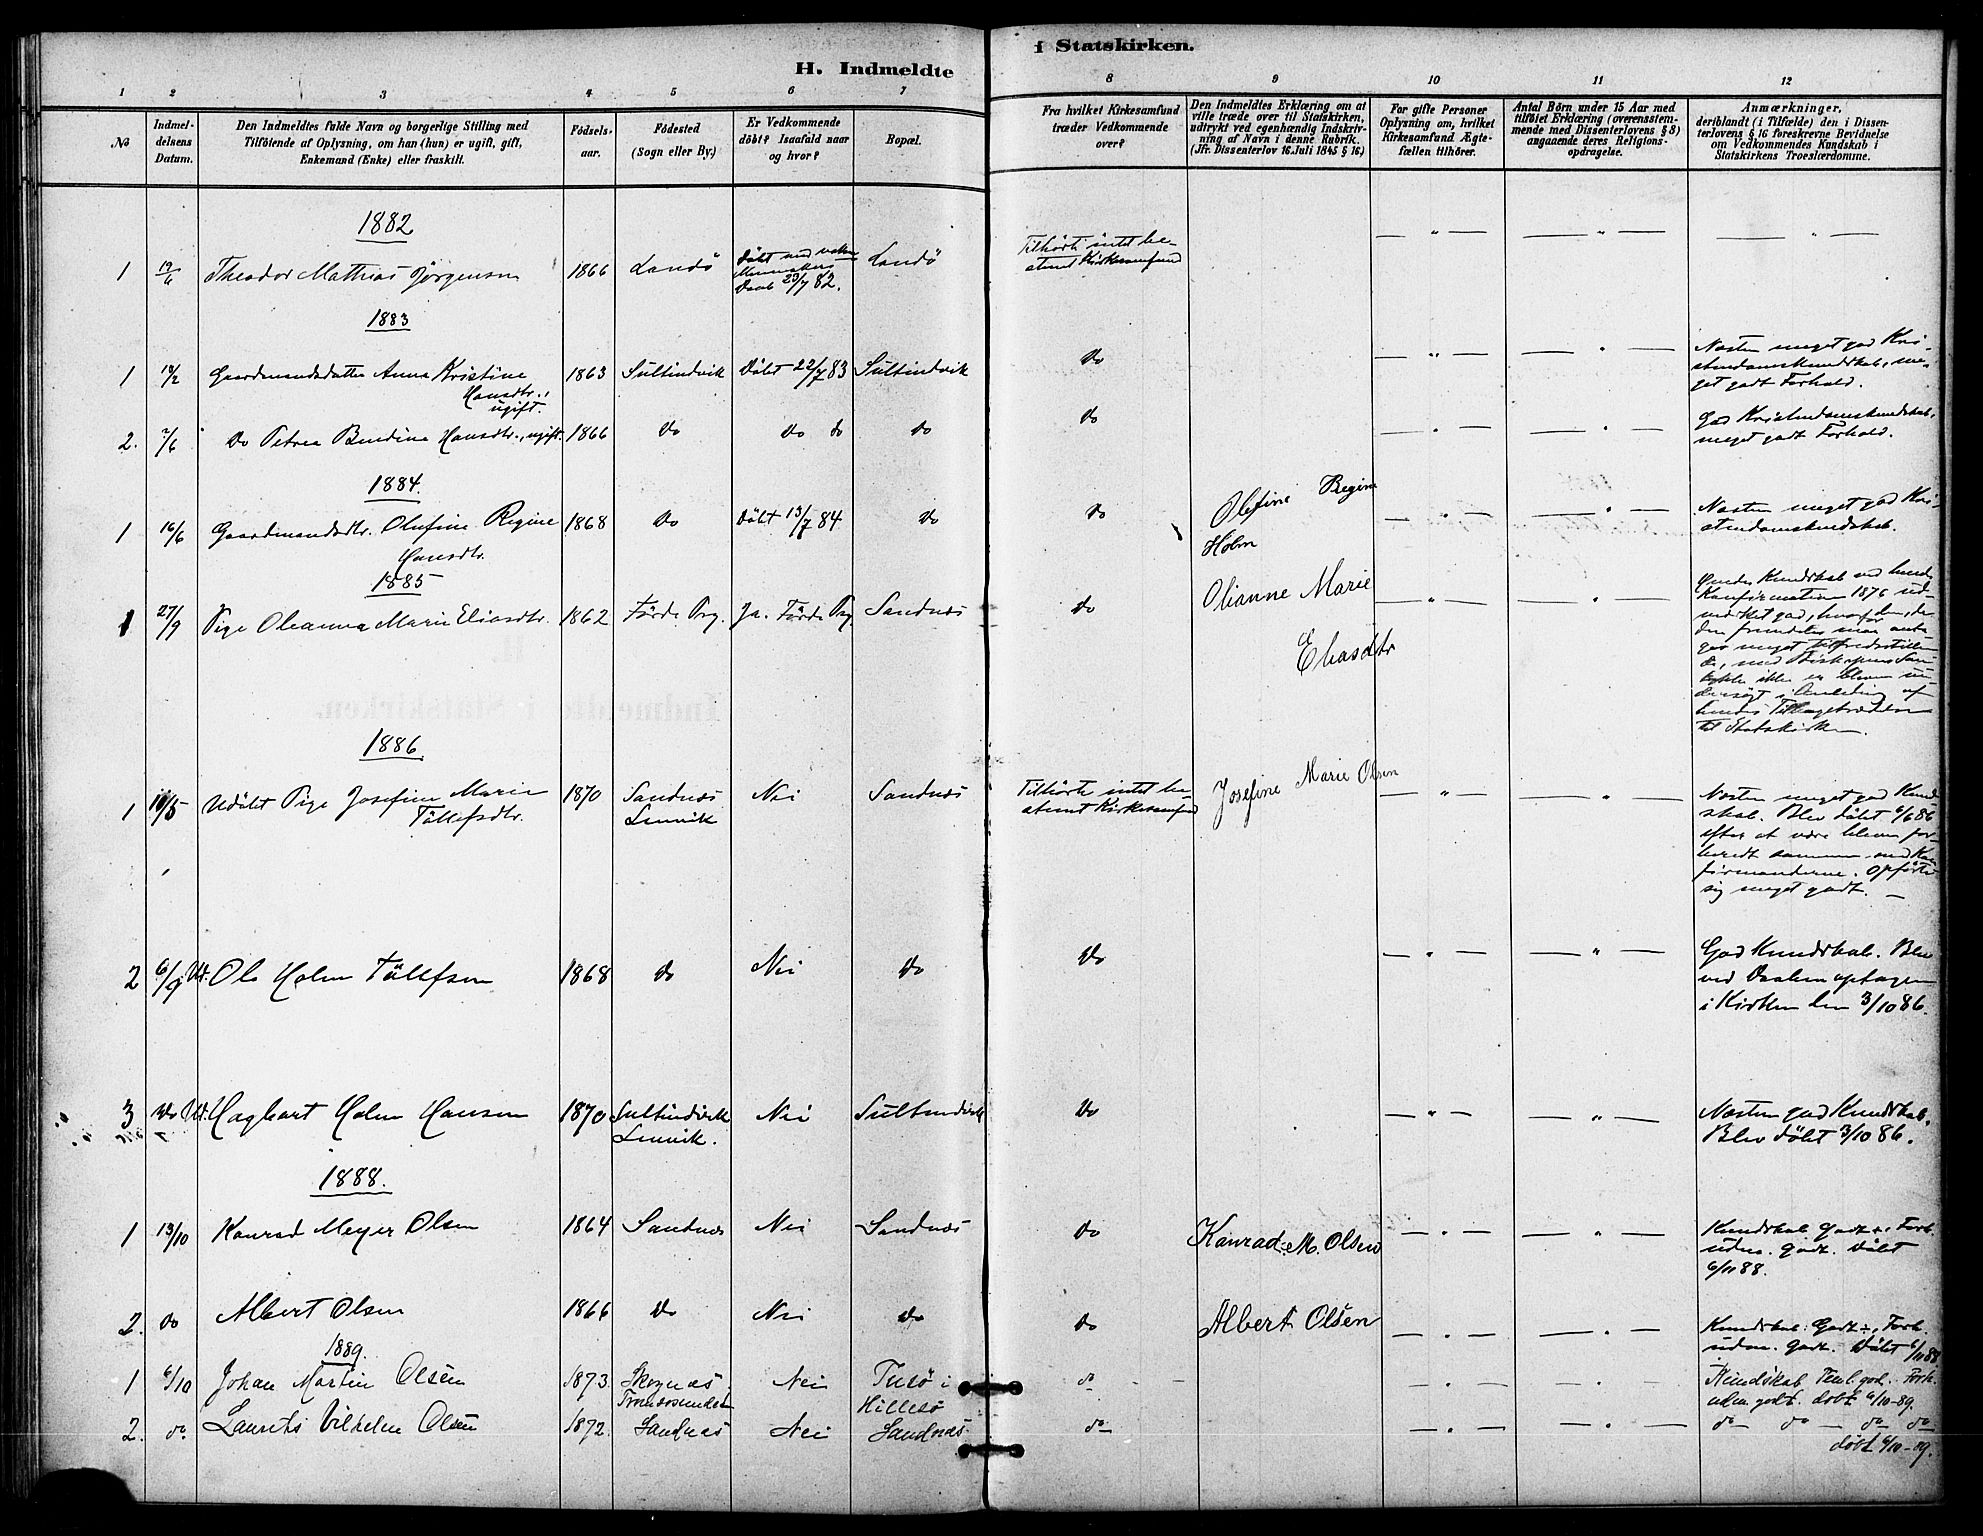 H. Indmeldte
i Statskirken.
1 2 3 4 5 6 7 8 9 10 11 12
No
Indmel-
delsens
Datum.
Den Indmeldtes fulde Navn og borgerlige Stilling med
Tilföiende af Oplysning, om han (hun) er ugift, gift,
Enkemand (Enke) eller fraskilt.
Födsels-
aar.
Födested
(Sogn eller By.)
Er Vedkommende
döbt? Isaafald naar
og hvor?
Bopæl.
Fra hvilket Kirkesamfund
træder Vedkommende
over?
Den Indmeldtes Erklæring om at
ville træde over til Statskirken,
udtrykt ved egenhændig Indskriv-
ning af Navn i denne Rubrik.
(Jfr. Dissenterlov 16. Juli 1845 § 16.)
For gifte Personer
Oplysning om, hvilket
Kirkesamfund Ægte-
fællen tilhörer.
Antal Börn under 15 Aar med
tilföiet Erklæring (overensstem-
mende med Dissenterlovens § 8)
angaaende deres Religions-
opdragelse.
Anmærkninger,
deriblandt (i Tilfælde) den i Dissen-
terlovens § 16 foreskrevne Bevidnelse
om Vedkommendes Kundskab i
Statskirkens Troeslærdomme.
1882
1 19/6 Theodor Mathias Jörgensen 1866 Landö Döbt ved
Daab 23/7 82. Landö Tilhörte intet be-
stemt Kirkesamfund — " — — " — — " —
1883
1 18/2 Gaardmandsdatter Anna Kristine
Hansdtr.,
ugift. 1863 Sultindvik Döbt 22/7 83 Sultindvik Do — " — — " — Næsten meget god Kri-
stendomskundskab, me-
get godt Forhold.
2. 7/6 Do Petrea Bendine Hansdtr., ugift. 1866 Do Do Do Do Do — " — — " — God Kristendomskundskab,
meget godt Forhold.
1884.
1 16/6 Gaardmandsdtr. Olufine Regine
Hansdtr. 1868 Do Döbt 13/7 84 Do Do Olefine Regine
Holm — " — — " — Næsten meget god Kri-
stendomskundskab.
1885
1 27/9 Pige Oleanna Marie Eliasdtr. 1862 Förde Prg. Ja. Förde Prg. Sandnæs Do Olianne Marie
Eliasdtr — " — — " — Kundskab ved hendes
Konfirmation 1876 ud-
mærket god, hvorfor den,
den fremdeles maa anta-
ges meget tilfredsstillen-
de, med Biskopens Sam-
tykke ikke er bleven un-
dersögt i Anledning af
hendes Tilbagetrædelse
til Statskirken.
1886.
1 10/5 Udöbt Pige Josefine Marie
Tollefsdtr. 1870 Sandnæs
Lenvik Nei Sandnæs Tilhörte intet be-
stemt Kirkesamfund Josefine Marie Olsen — " — — " — Næsten meget god Kund-
skab. Blev döbt 6/6 86
efter at være bleven for-
beredt sammen med Kon-
firmanderne. Opförte
sig meget godt. —
2 6/9 Ud. Ole Holm Tollefsen 1868 Do Nei Do Do — " — — " — God Kundskab. Blev
ved Daaben optagen
i Kirken den 3/10 86.
3 Do Ud. Hagbart Holm Hansen 1870 Sultindvik
Lenvik. Nei Sultindvik Do — " — — " — Næsten god Kundskab.
Blev döbt 3/10 86.
1888.
1 13/10 Konrad Meyer Olsen 1864 Sandnæs Nei Sandnæs Do Konrad M. Olsen — " — — " — Kundskab Godt ÷, Forh.
uden. godt. Döbt
6/11 88.
2. Do Albert Olsen 1866 Do Nei Do Do Albert Olsen — " — — " — Kundskab. Godt ÷, Forh.
uden. godt. Döbt 6/11 88
1889.
1 6/10 Johan Martin Olsen 1873. Skognæs
Tromsösundet Nei Tusö i
Hillesö do — " — — " — Kundskab Teml. god. Forh.
uden. godt. döbt 6/10-89.
2. do Laurits Vilhelm Olsen 1872. Sandnæs Nei Sandnæs do — " — — " — do do do do
döbt 6/10-89.